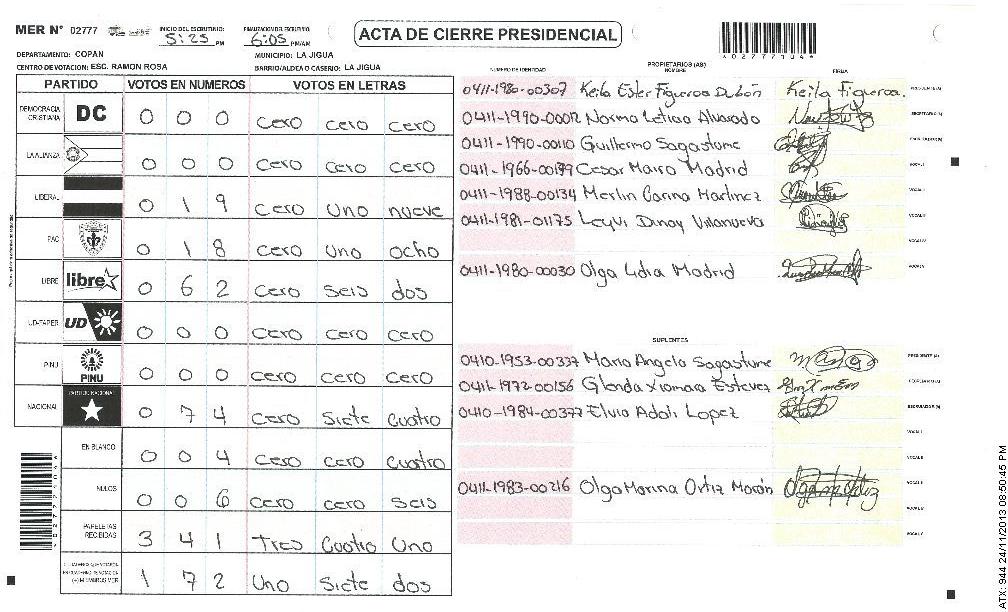 MER N° 02777
INICIO DEL ESCRUTINIO: 5:25 PM
FINALIZACION DEL ESCRUTINIO: 6:05 PM/AM
ACTA DE CIERRE PRESIDENCIAL
*02777104*
DEPARTAMENTO: COPÁN
MUNICIPIO: LA JIGUA
CENTRO DE VOTACION: ESC. RAMON ROSA
BARRIO/ALDEA O CASERIO: LA JIGUA
PARTIDO VOTOS EN NUMEROS VOTOS EN LETRAS
DEMOCRACIA CRISTIANA DC 0 0 0 cero cero cero
LA ALIANZA 0 0 0 cero cero cero
LIBERAL 0 1 9 cero uno nueve
PAC 0 1 8 cero uno ocho
LIBRE libre 0 6 2 cero seis dos
UD-FAPER UD 0 0 0 cero cero cero
PINU PINU 0 0 0 cero cero cero
NACIONAL PARTIDO NACIONAL 0 7 4 cero siete cuatro
EN BLANCO 0 0 4 cero cero cuatro
NULOS 0 0 6 cero cero seis
PAPELETAS RECIBIDAS 3 4 1 Tres Cuatro Uno
(+) MIEMBROS MER 1 7 2 Uno Siete dos
PROPIETARIOS (AS)
NUMERO DE IDENTIDAD NOMBRE FIRMA
0411-1980-00307 Keila Ester Figueroa Dubón Keila Figueroa. PRESIDENTE (A)
0411-1990-00012 Norma Leticia Alvarado SECRETARIO (A)
0411-1990-00110 Guillermo Sagastume ESCRUTADOR (A)
0411-1966-00199 Cesar Mairo Madrid VOCAL I
0411-1988-00134 Merlin Carina Martinez VOCAL II
0411-1981-01175 Leyvi Dinay Villanueva VOCAL III
VOCAL IV
0411-1980-00030 Olga Lidia Madrid VOCAL V
SUPLENTES
0410-1953-00337 Maria Angela Sagastume PRESIDENTE (A)
0411-1972-00156 Glenda Xiomara Estevez SECRETARIO (A)
0410-1984-00377 Elvia Adali Lopez ESCRUTADOR (A)
VOCAL I
VOCAL II
0411-1983-00216 Olga Marina Ortiz Morán VOCAL III
VOCAL IV
VOCAL V
ATX: 944 24/11/2013 08:50:45 PM